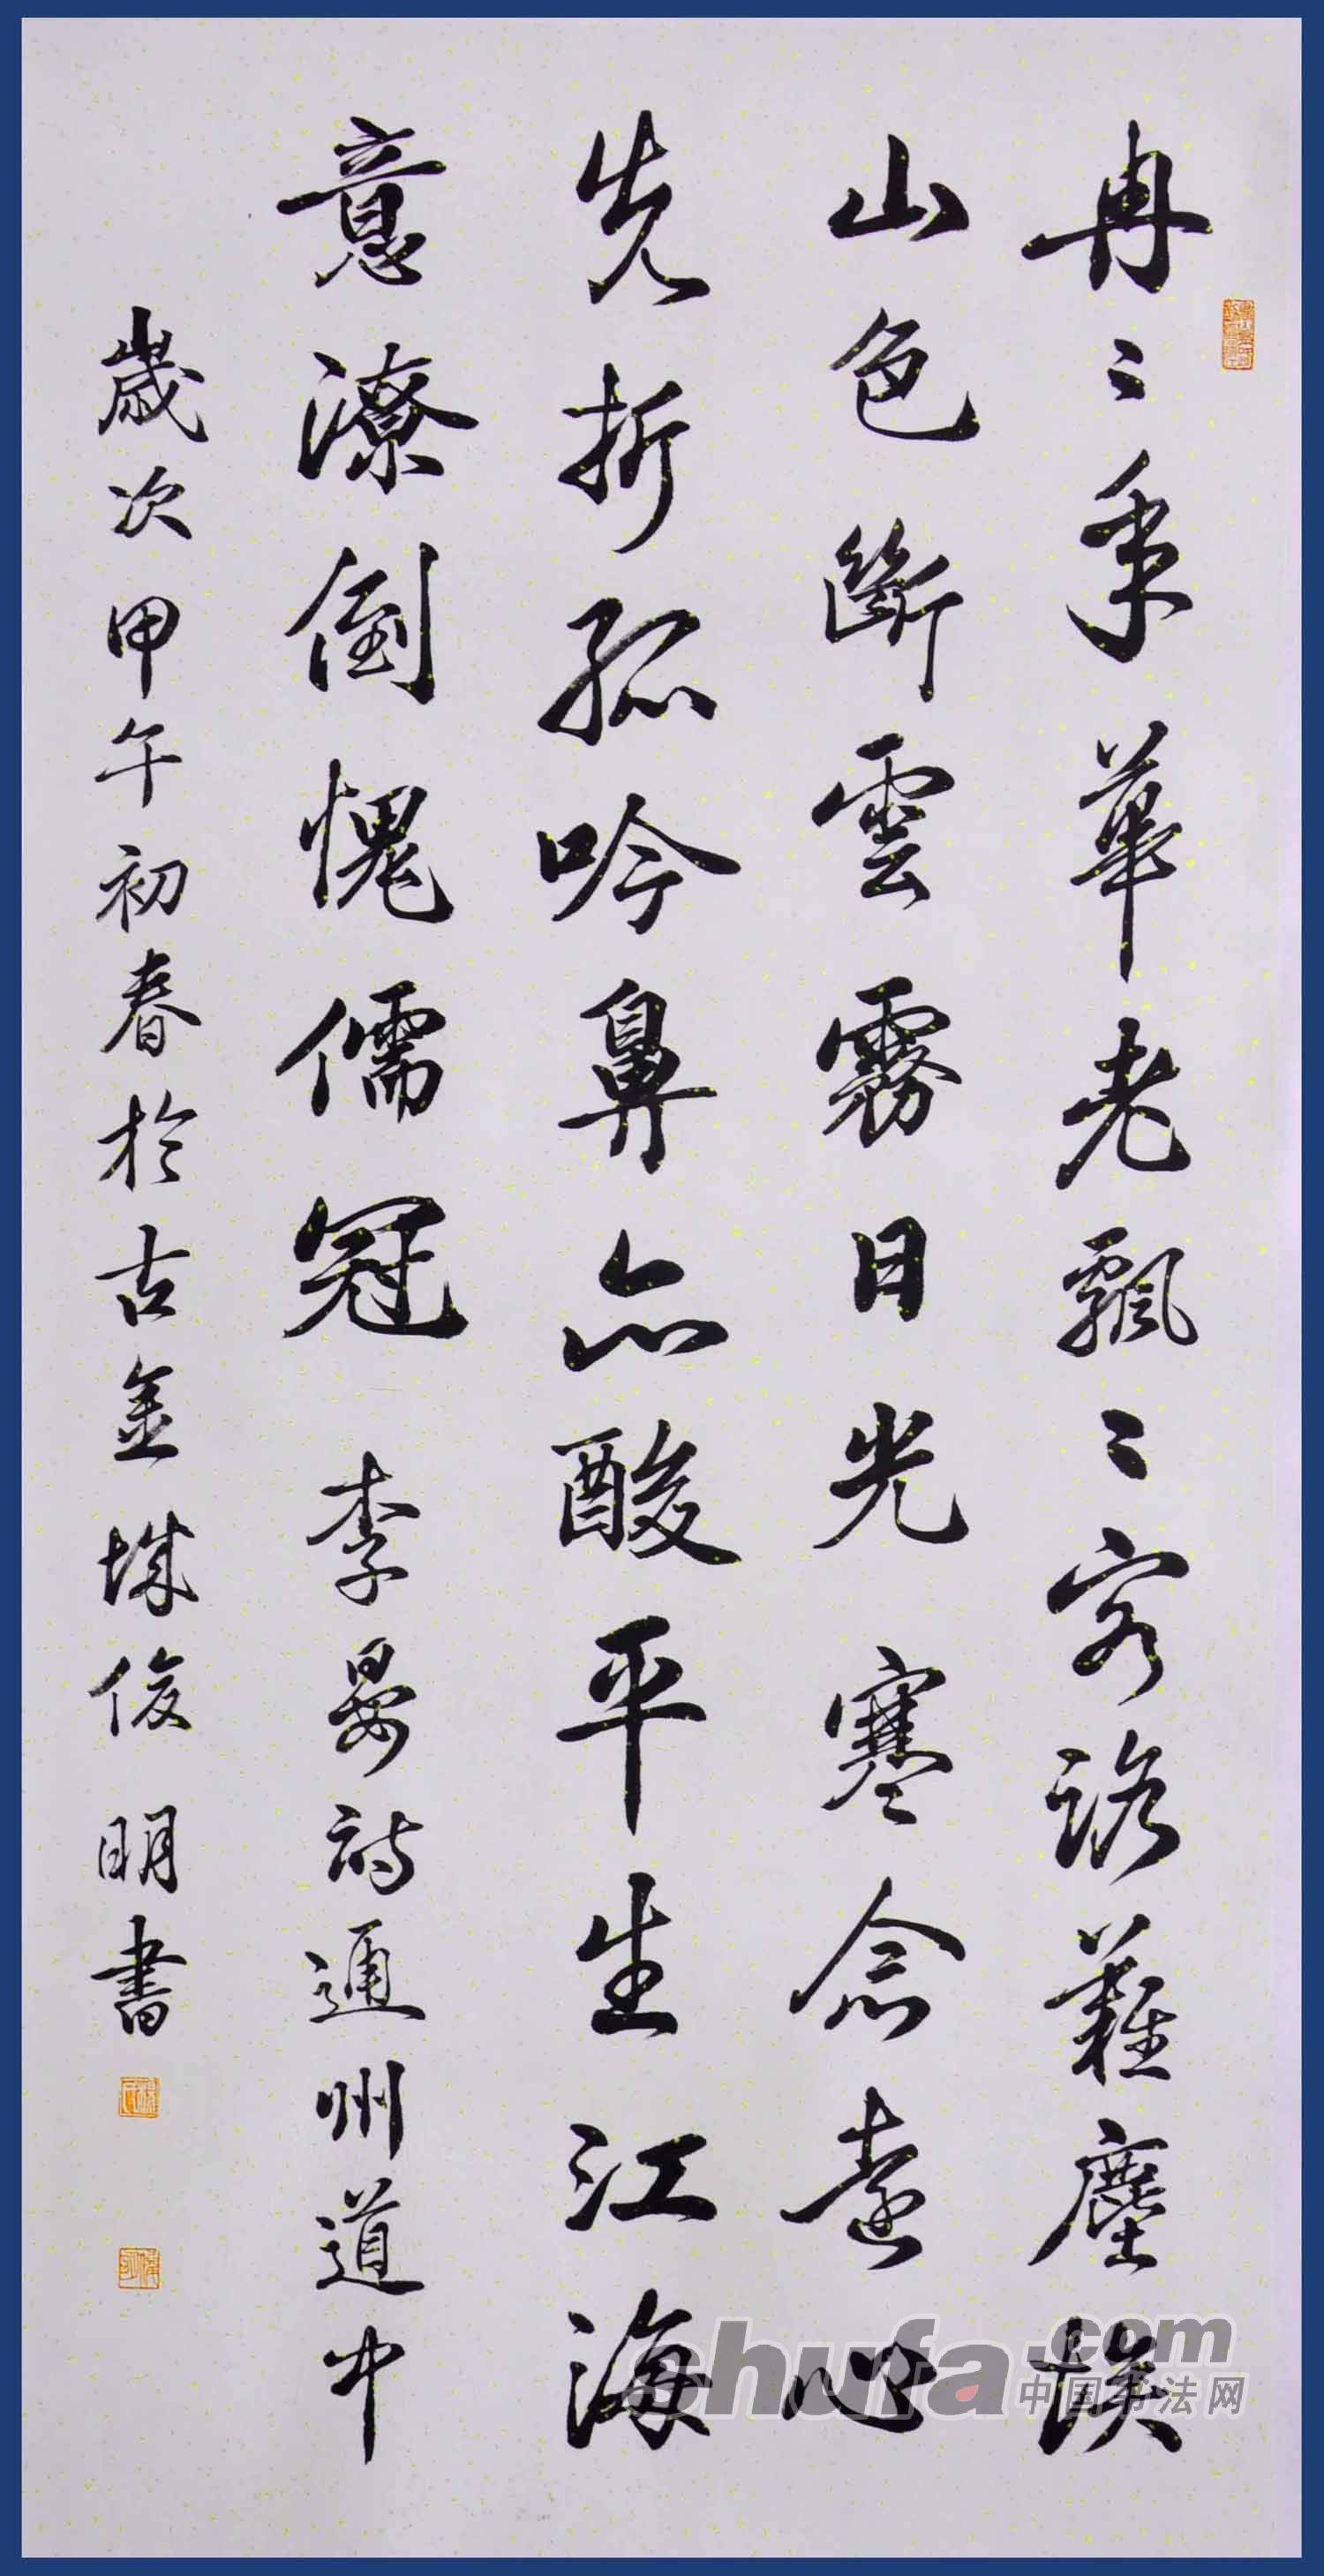 冉〻年華老飄〻客路難塵埃
山色斷雲霧日光寒念遠心
先折孤吟鼻亦酸平生江海
意潦倒愧儒冠 李晏詩通州道中
歲次甲午初春於古金城俊明書
shufa.com
中国书法网